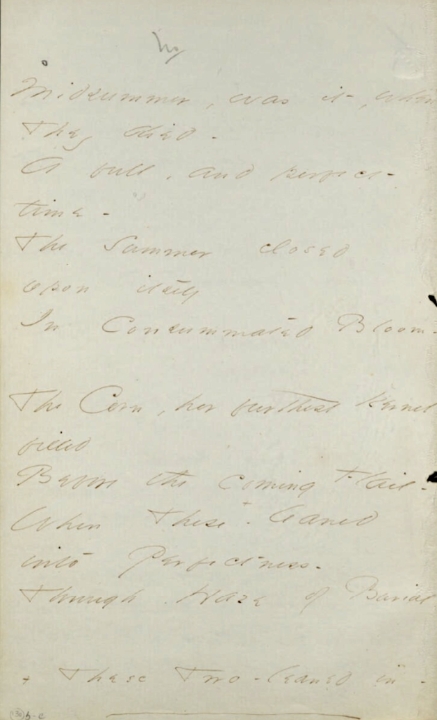 Midsummer, was it, when
They died -
A full, and perfect
time -
The Summer closed
upon itself
In Consummated Bloom -
The Corn, her furthest Kernel
filled
Before the coming + Flail -
When These - leaned
into Perfectness -
Through Haze of Burial
+ These Two - leaned in -